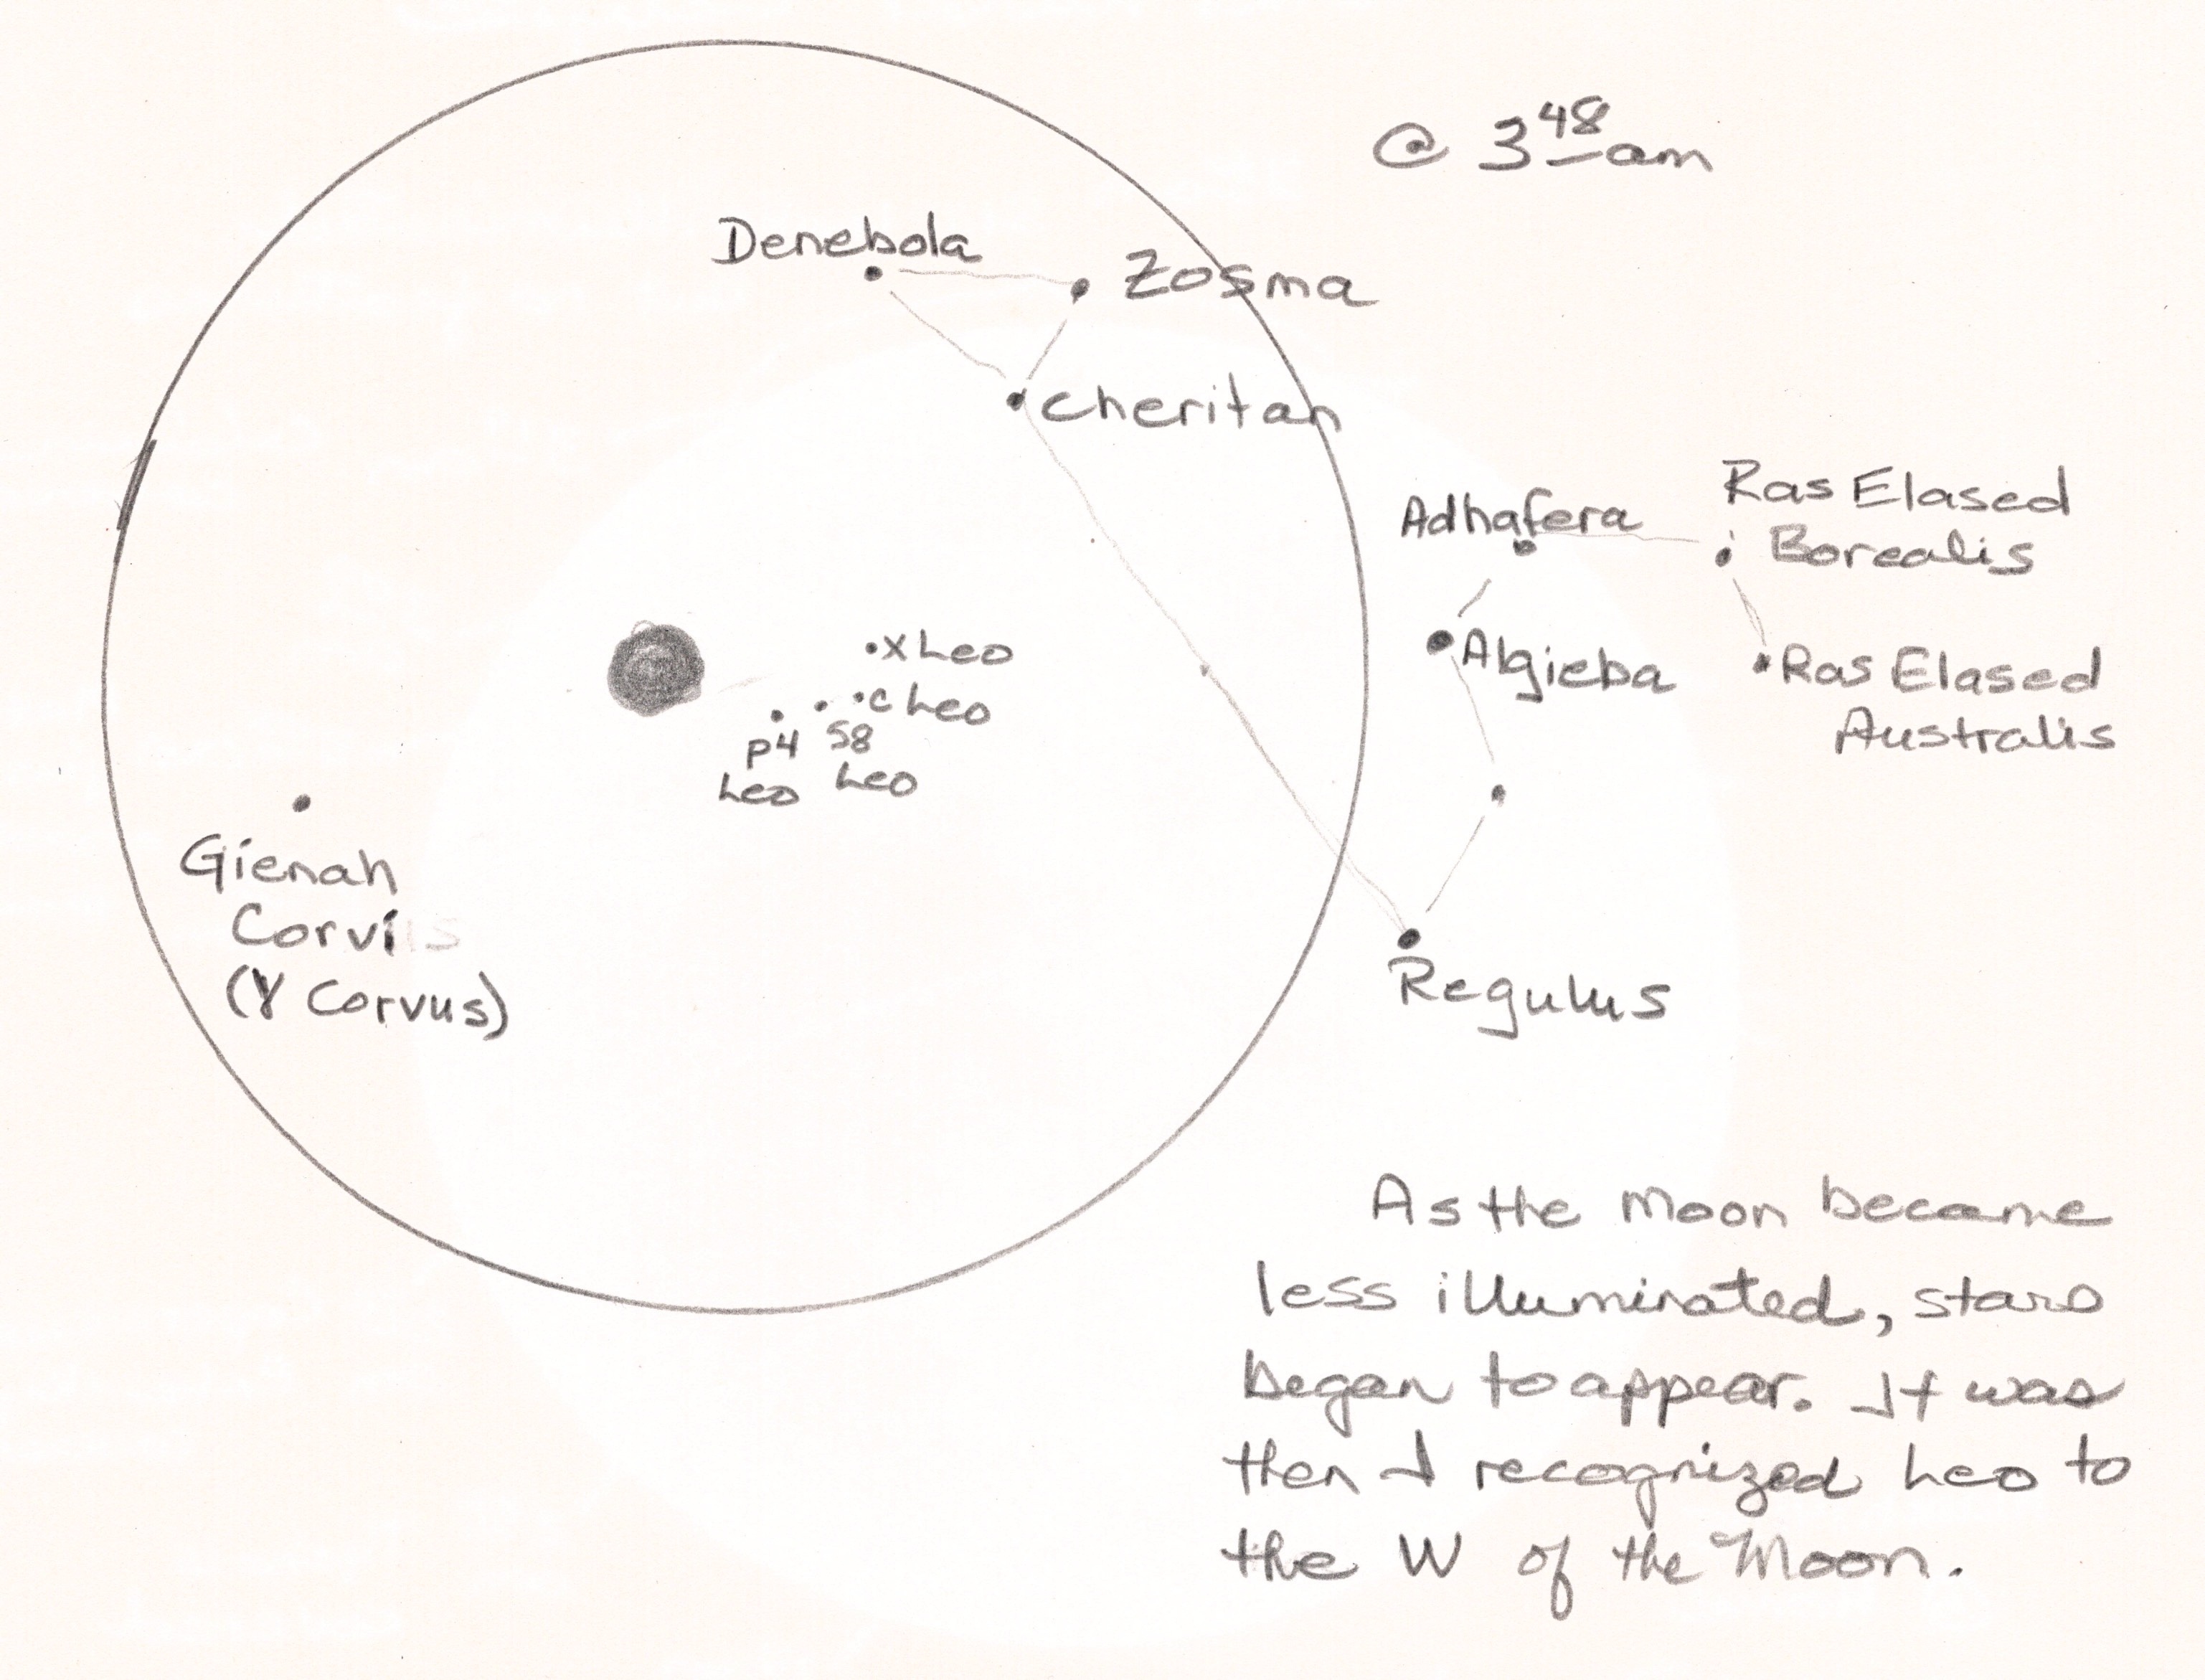 @ 3 48 am
Denebola
Zosma
Cheritan
Adhafera
Ras Elased
Borealis
Algieba
Ras Elased
Australis
x Leo
c Leo
p4
Leo
58
Leo
Gienah
Corvi
(γ Corvus)
Regulus
As the Moon became
less illuminated, stars
began to appear. It was
then I recognized Leo to
the W of the Moon.